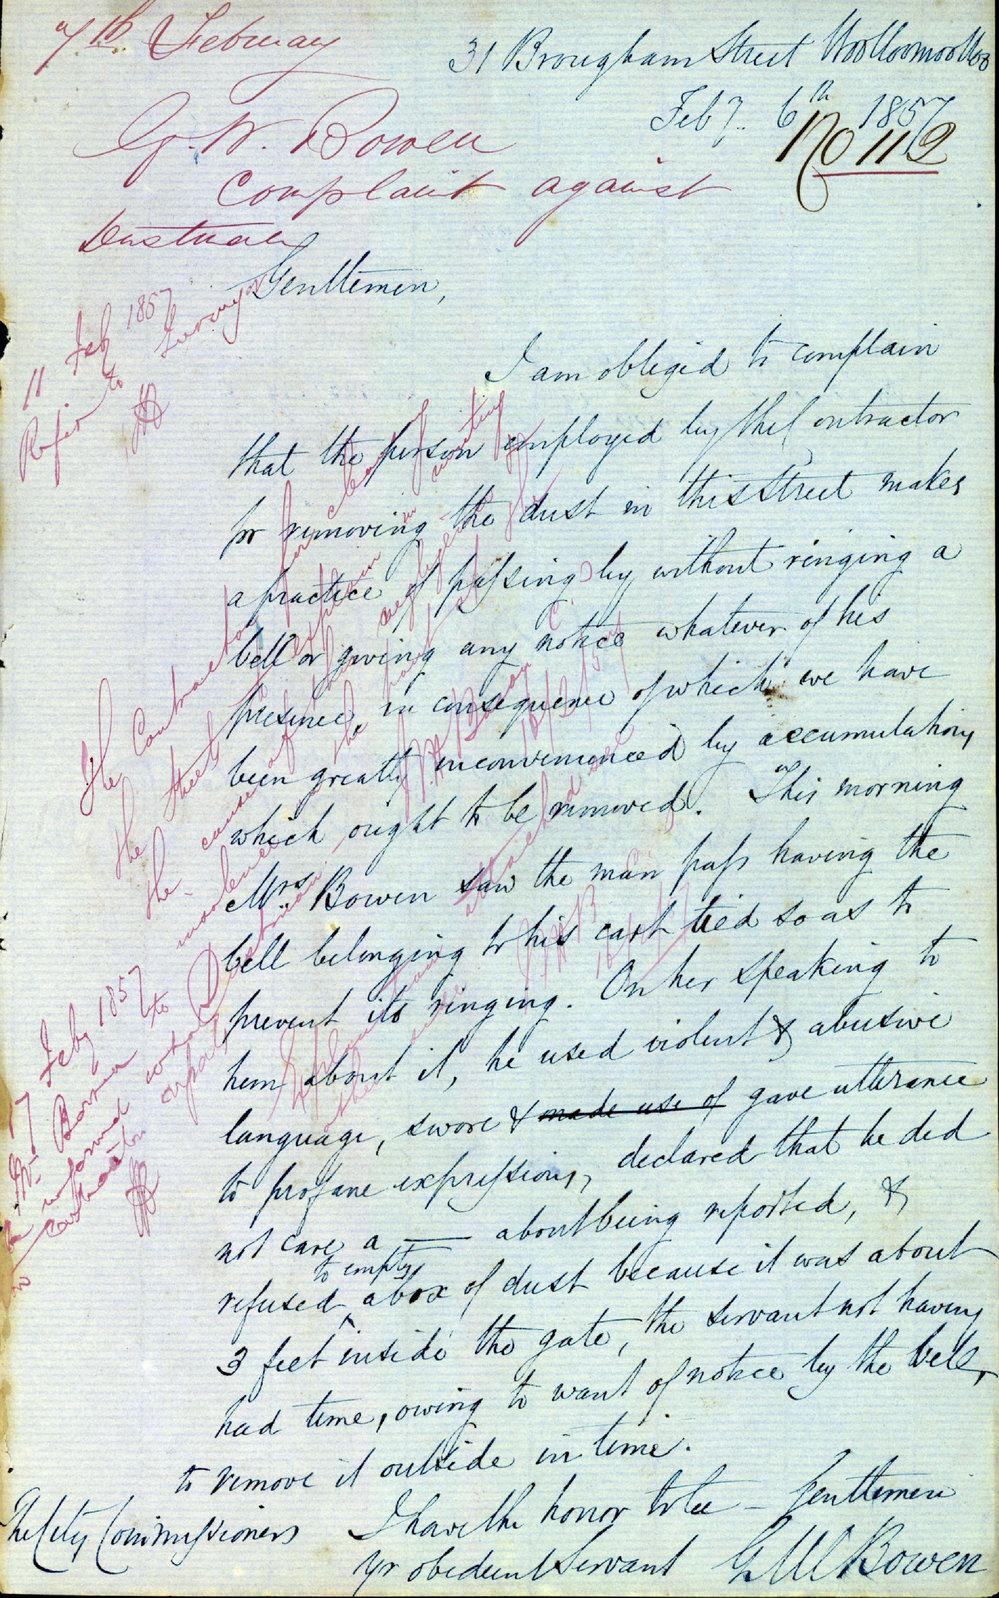 7th February
31 Brougham Street Woolloomooloo
Feby. 6th 1857
No 112
G. W. Bowen
Complaint against
Dustman
Gentlemen,
11 Feby 1857
Refer to Surveyor
I am obliged to complain
that the person employed by the Contractor
for removing the dust in this Street makes
a practice of passing by without ringing a
bell or giving any notice whatever of his
presence, in consequence of which we have
been greatly inconvenienced by accumulations
which ought to be removed. This morning
Mrs. Bowen saw the man pass having the
bell belonging to his cart tied so as to
prevent its ringing. On her speaking to
him about it, he used violent & abusive
language, swore & made use of gave utterance
to profane expressions, declared that he did
not care a —— about being reported, &
refused to empty a box of dust because it was about
3 feet inside the gate, the servant not having
had time, owing to want of notice by the bell,
to remove it outside in time.
I have the honor to be – Gentlemen
Yr obedient Servant G W Bowen
The City Commissioners
The Contractor for cleaning
the streets to explain in writing
the cause of the neglect
17 Feby 1857